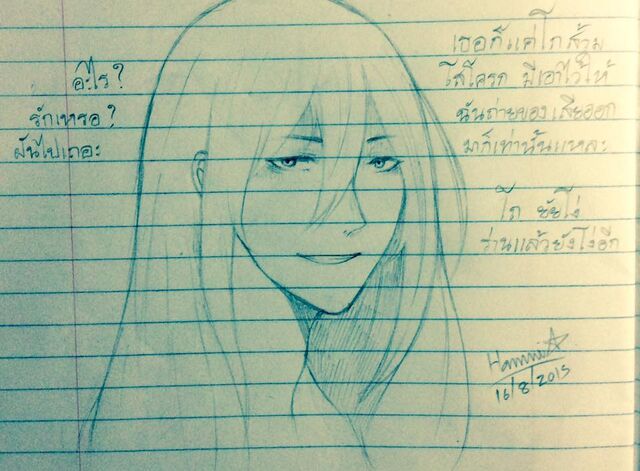 อะไร?
รักเหรอ?
ฝันไปเถอะ
เธอก็แค่โถส้วม
โสโครก มีเอาไว้ให้
ฉันถ่ายของเสียออก
มาก็เท่านั้นแหละ
โถ ยัยโง่
ร่านแล้วยังโง่อีก
16/8/2015